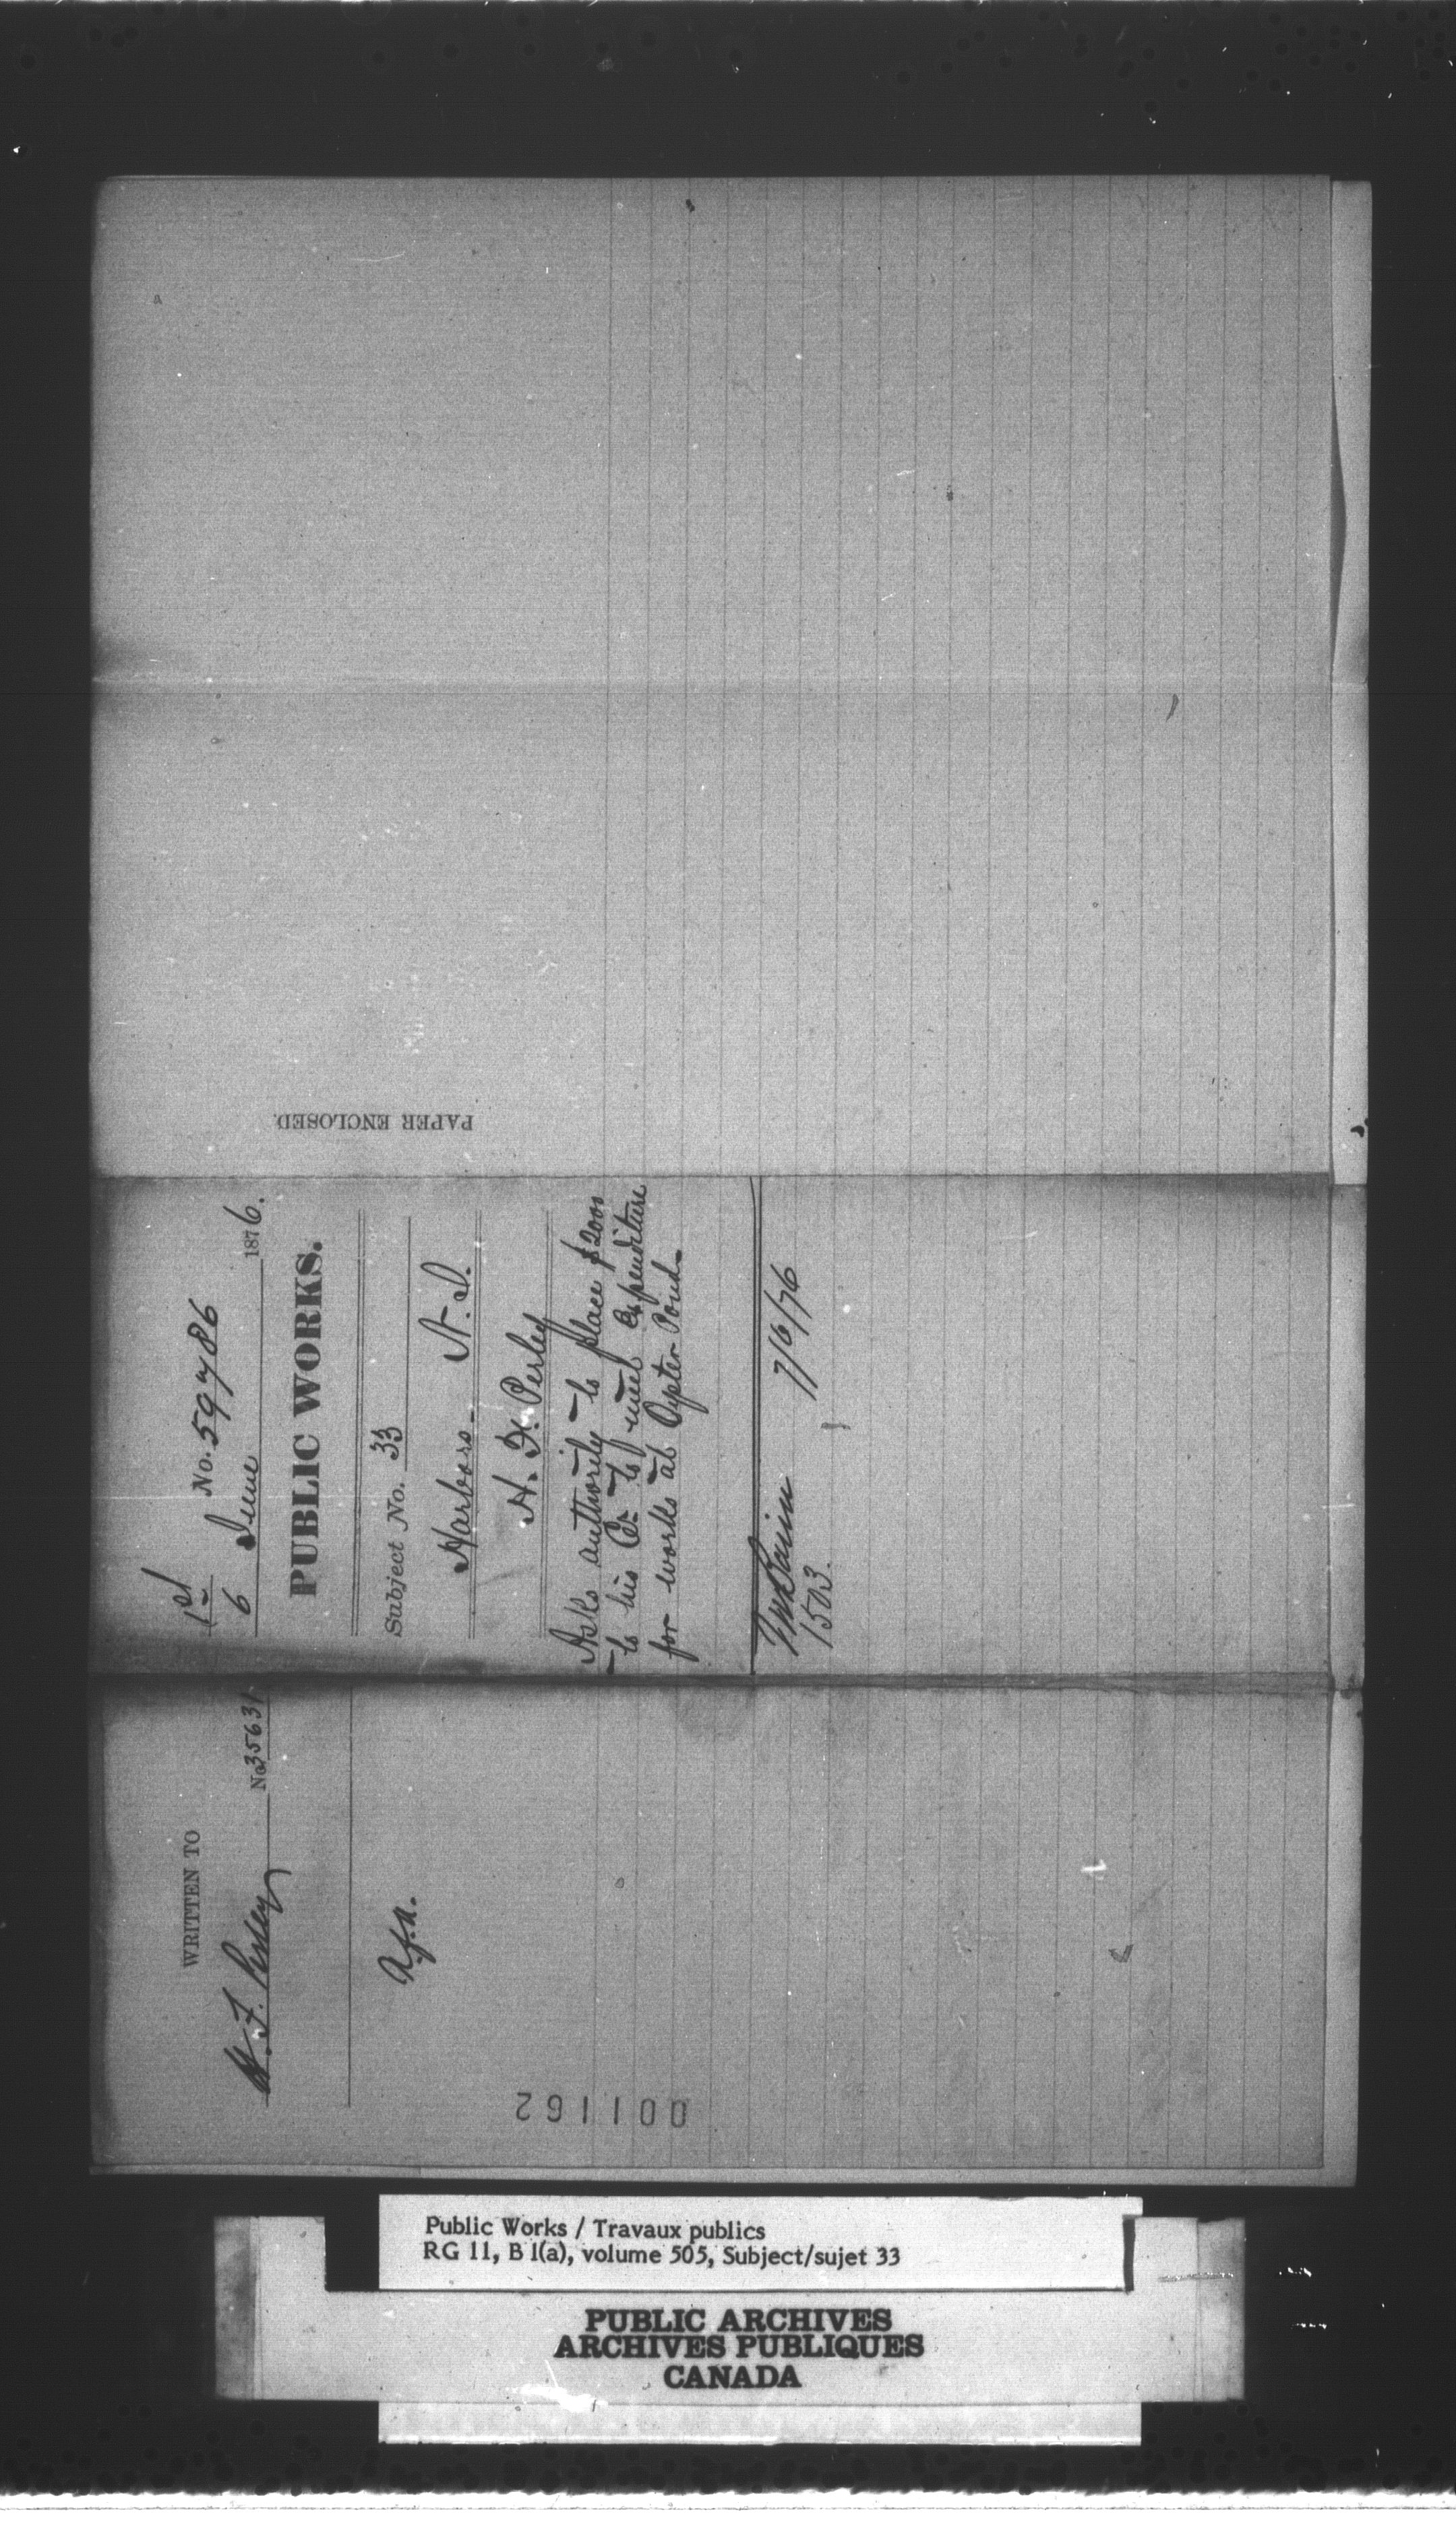 PAPER ENCLOSED.
1st No. 59786
6 June 1876.
PUBLIC WORKS.
Subject No. 33
Harbors - N. S.
H. F. Perley
Asks authority to place $2000
to his Cr. to meet expenditure
for works at Oyster Pond.
7/6/76
1503.
WRITTEN TO
H. F. Perley No. 35631
001162
Public Works / Travaux publics
RG 11, B 1(a), volume 505, Subject/sujet 33
PUBLIC ARCHIVES
ARCHIVES PUBLIQUES
CANADA